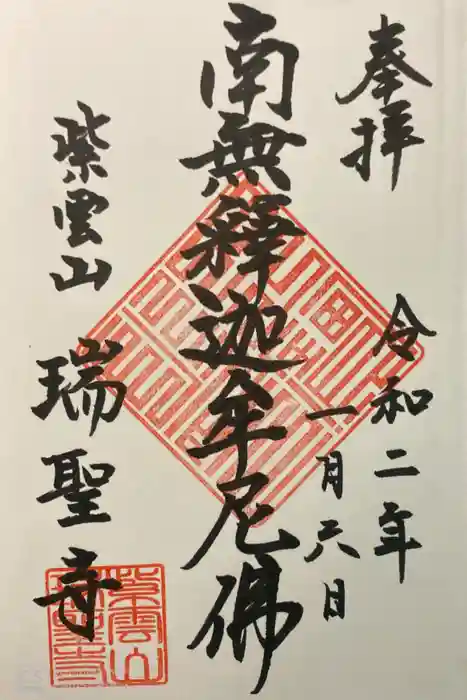 奉拝
令和二年
一月六日
南無釋迦牟尼佛
紫雲山
瑞聖寺
紫雲山
瑞聖寺